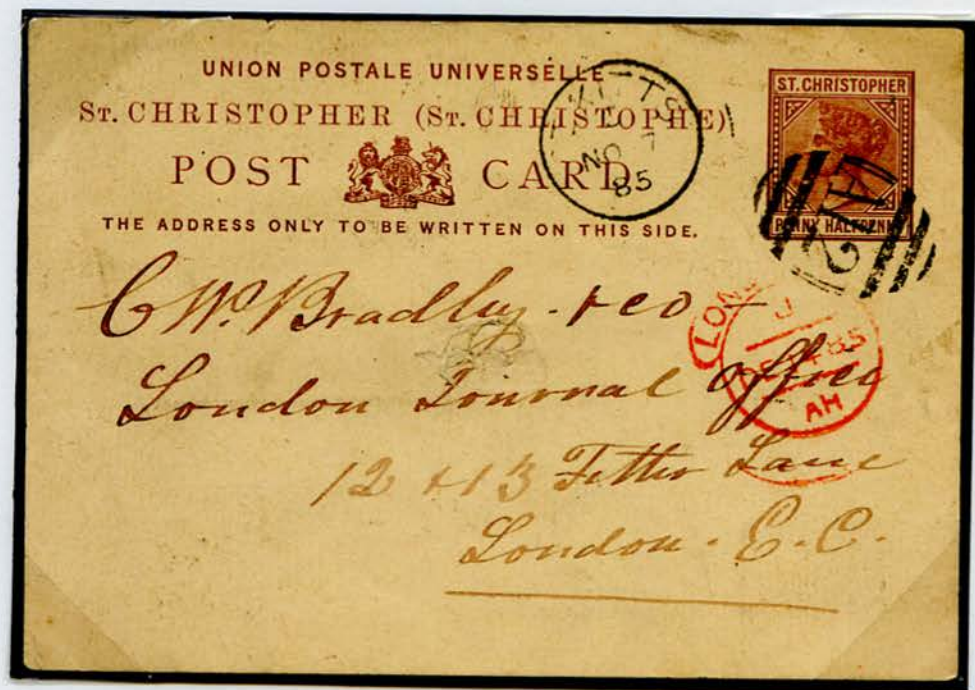 UNION POSTALE UNIVERSELLE
ST. CHRISTOPHER (ST. CHRISTOPHE)
POST CARD
THE ADDRESS ONLY TO BE WRITTEN ON THIS SIDE.
ST. CHRISTOPHER
PENNY HALFPENNY
ST. KITTS
NO 7
85
A12
C W. Bradley & co
London Journal Office
12 & 13 Fetter Lane
London. E.C.
DE 4 85
AH